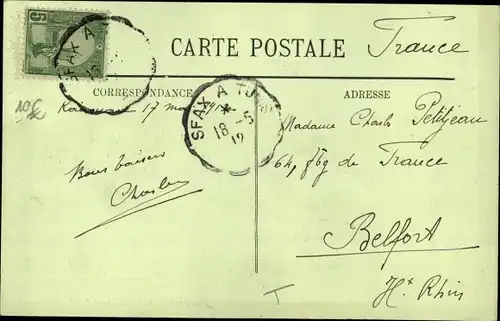 5
SFAX A
10€
CARTE POSTALE
France
CORRESPONDANCE
ADRESSE
17 mai
SFAX A TU
18-5
12
Bons baisers
Charles
Madame Charles Petitjean
64, fbg de France
Belfort
Ht Rhin
T